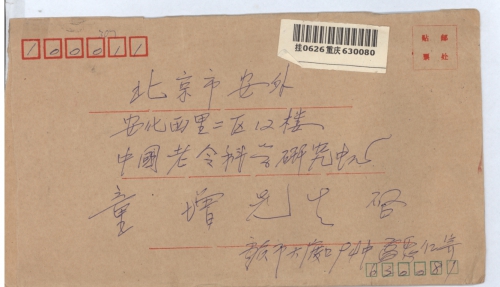 100011
挂0626重庆630080
贴 邮
票 处
北京市安外
安化西里二区12楼
中國老令科学研究中心
童增先生 启
重庆市大渡口
630081